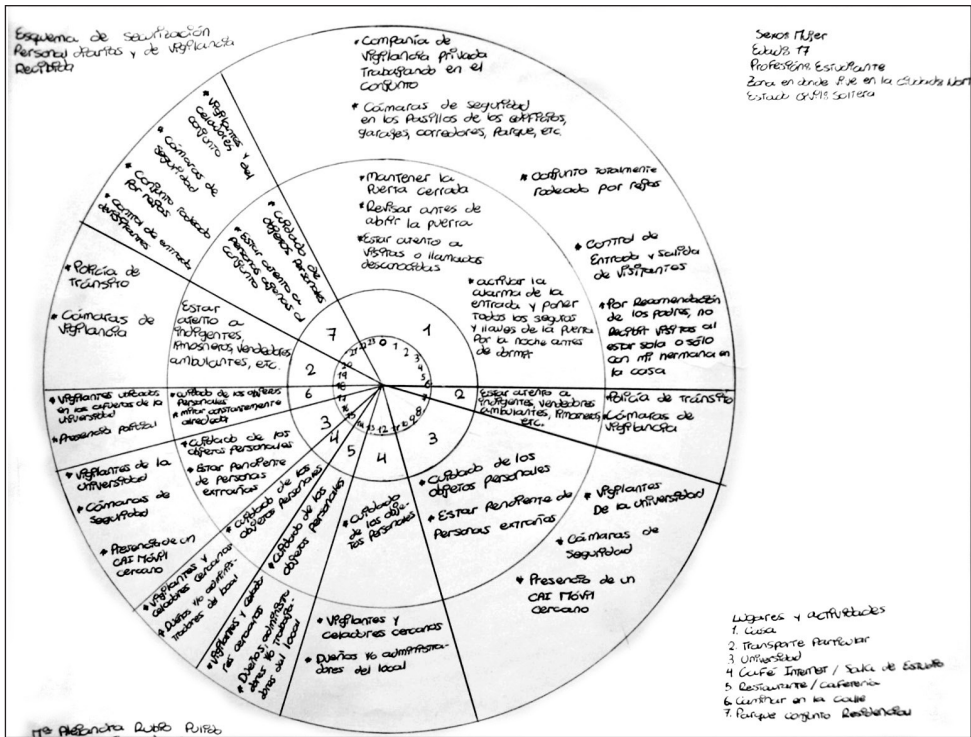 Esquema de securización
Personal diarias y de vigilancia
Recibida
Sexo: Mujer
Edad: 17
Profesión: Estudiante
Zona en donde vive en la ciudad: Nort
Estado civil: Soltera
* Compañía de
vigilancia privada
Trabajando en el
conjunto
* Cámaras de seguridad
en los pasillos de los edificios,
garajes, corredores, parque, etc.
* conjunto totalmente
rodeado por rejas
* Control de
Entrada y salida
de visitantes
* Por Recomendación
de los padres, no
recibir visitas al
estar sola o sólo
con mi hermana en
la casa
* Mantener la
Puerta cerrada
* Revisar antes de
abrir la puerta
* Estar atento a
visitas o llamadas
desconocidas
* activar la
alarma de la
entrada y poner
Todos los seguros
y llaves de la puerta
Por la noche antes
de dormir
1
2
Estar atento a
indigentes, vendedores
ambulantes, limosneros,
etc.
* Policía de Tránsito
* Cámaras de
vigilancia
3
* Cuidado de los
objetos personales
* Estar Pendiente de
Personas extrañas
* Vigilantes
De la universidad
* Cámaras de
Seguridad
* Presencia de un
CAI Móvil
cercano
4
* Cuidado
de los obje-
tos personales
* Vigilantes y
celadores cercanos
* Dueños y/o administra-
dores del local
5
* Cuidado de los
objetos personales
* Vigilantes y celado
res cercanos
* Dueños, administra
dores y/o trabaja-
dores del local
4
* Cuidado de los
objetos personales
* Vigilantes y
celadores cercanos
* Dueños y/o adminis-
tradores del local
3
* Cuidado de los
objetos personales
* Estar Pendiente
de personas
extrañas
* Vigilantes de la
universidad
* Cámaras de
seguridad
* Presencia de un
CAI Móvil
cercano
6
* cuidado de los objetos
Personales
* mirar constantemente
alrededor
* Vigilantes ubicados
en las afueras de la
universidad
* Presencia policial
2
Estar
atento a
indigentes,
limosneros, vendedores
ambulantes, etc.
* Policía de
Tránsito
* Cámaras de
vigilancia
7
* Cuidado de
objetos personales
* Estar atento a
personas ajenas al
conjunto
* Vigilantes y
celadores del
conjunto
* Cámaras de
seguridad
* Conjunto rodeado
Por rejas
* Control de entrada
de visitantes
0 1 2 3 4 5 6 7 8 9 10 11 12 13 14 15 16 17 18 19 20 21 22 23
Lugares y actividades
1. Casa
2. Transporte Particular
3 Universidad
4 Café Internet / Sala de Estudio
5 Restaurante / Cafetería
6. Caminar en la calle
7. Parque conjunto Residencial
Mª Alejandra Rubio Pulido